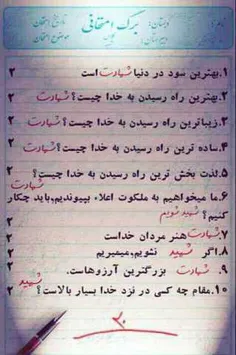 برگ امتحانی
۱.بهترین سود در دنیا شهادت است ۲
۲.بهترین راه رسیدن به خدا چیست؟ شهادت ۲
۳.زیباترین راه رسیدن به خدا چیست؟ شهادت ۲
۴.ساده ترین راه رسیدن به خدا چیست؟ شهادت ۲
۵.لذت بخش ترین راه رسیدن به خدا چیست؟ شهادت ۲
۶.ما میخواهیم به ملکوت اعلاء بپیوندیم,باید چکار
کنیم؟ شهید شویم ۲
۷. شهادت هنر مردان خداست ۲
۸.اگر شهید نشویم,میمیریم ۲
۹. شهادت بزرگترین آرزوهاست. ۲
۱۰.مقام چه کسی در نزد خدا بسیار بالاست؟ شهید ۲
۲۰